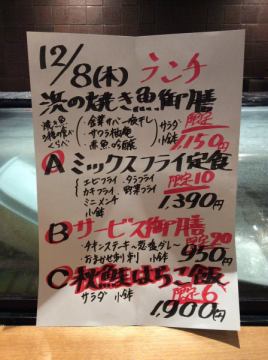 12/8(木) ランチ
浜の焼き魚御膳
焼き魚 3種の食べくらべ
・金華サバ一夜干し
・サワラ柚庵
・赤魚吟醸
サラダ
小鉢
限定
1,150円
A ミックスフライ定食
エビフライ、タラフライ
カキフライ、野菜フライ
ミニメンチ
小鉢
限定10
1,390円
B サービス御膳
・チキンステーキ〜葱塩ダレ〜
・おまかせ刺身 小鉢
限定20
950円
C 秋鮭はらこ飯
サラダ 小鉢
限定6
1,900円